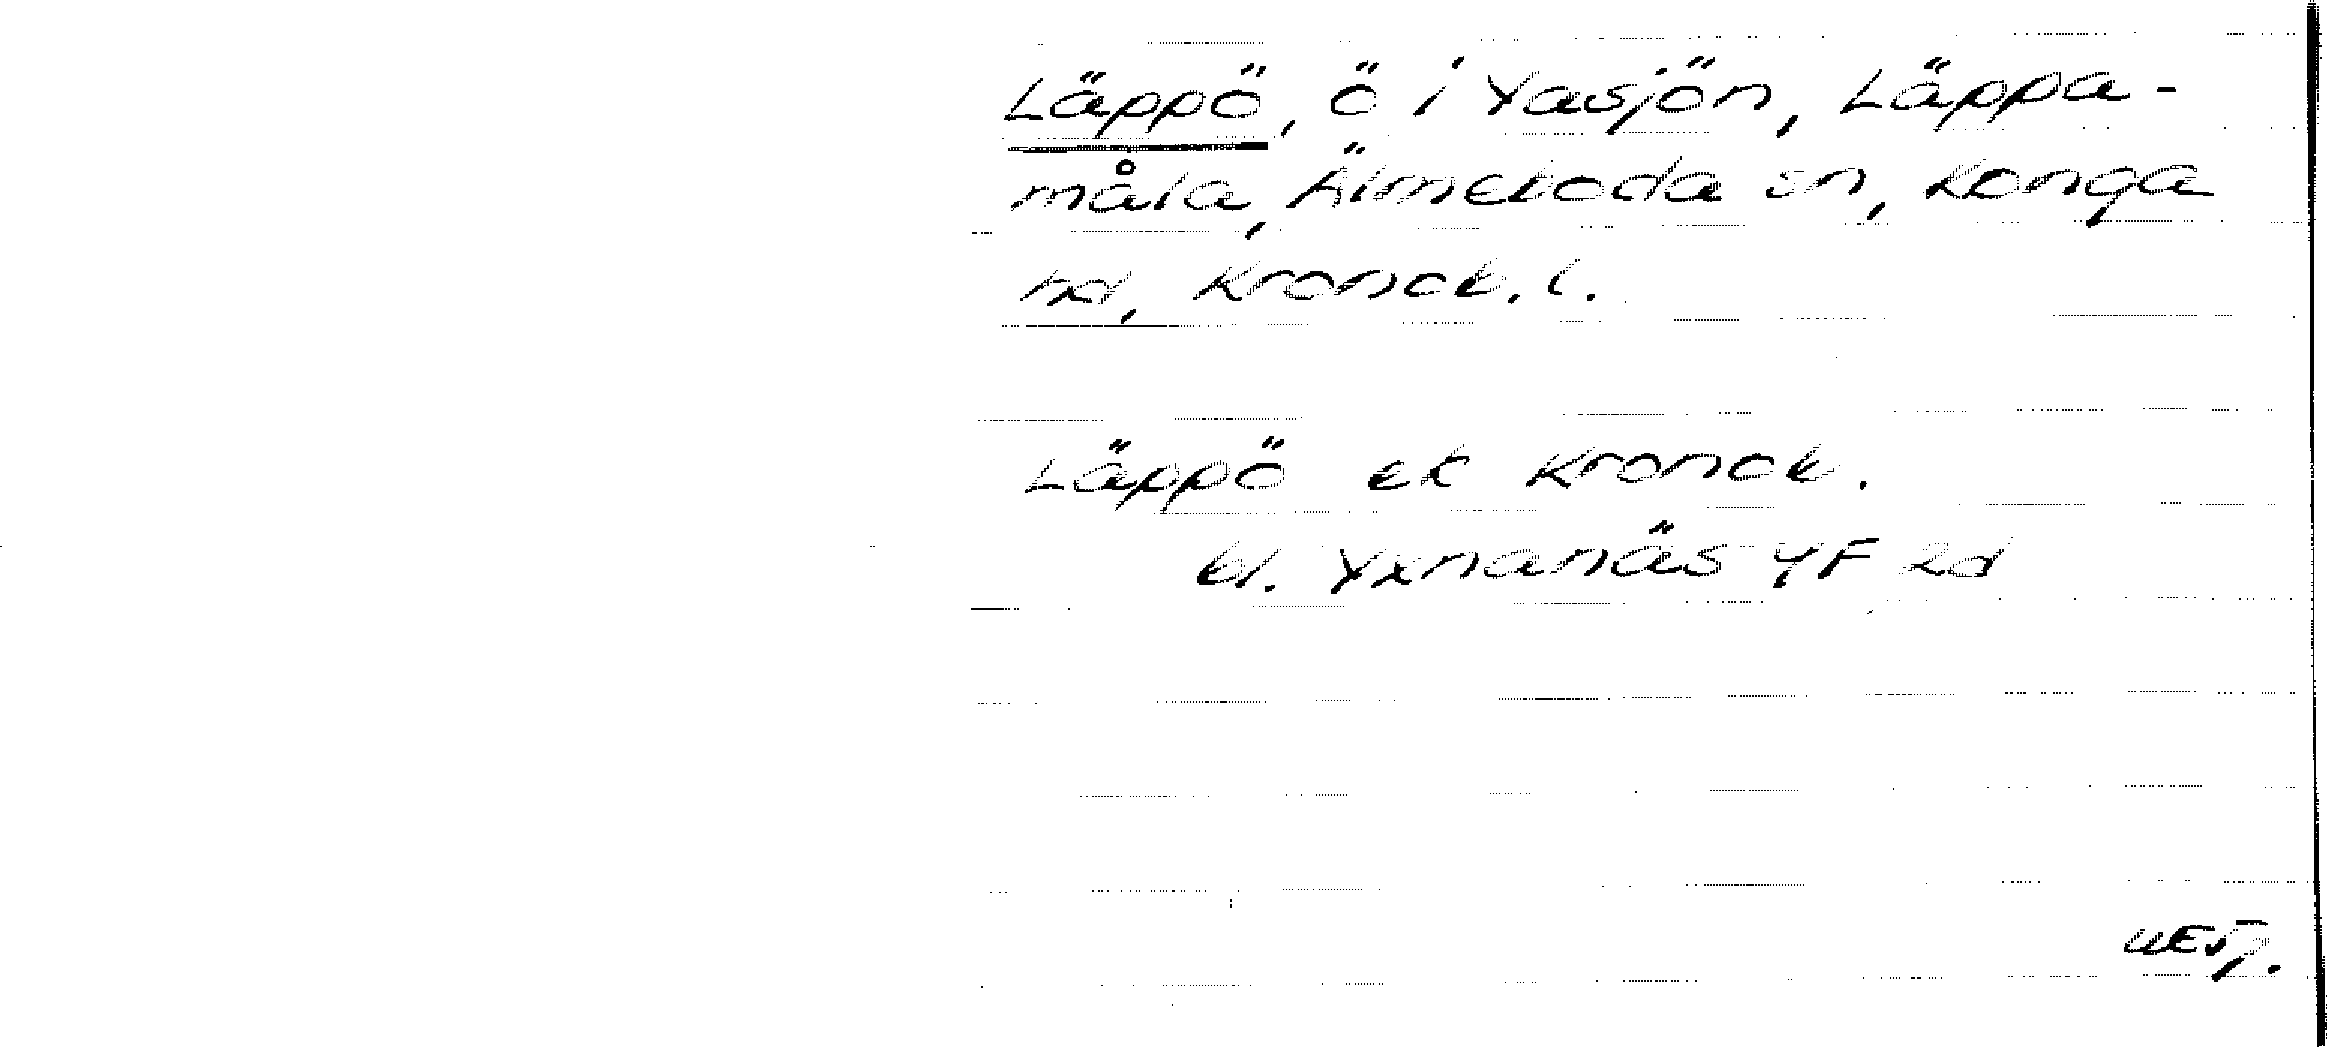 Läppö, ö i Yasjön, Läppa-
måla, Älmeboda sn, Konga
hd, Kronob. l.
Läppö ek Kronob.
bl. Yxnanäs 4F 2d